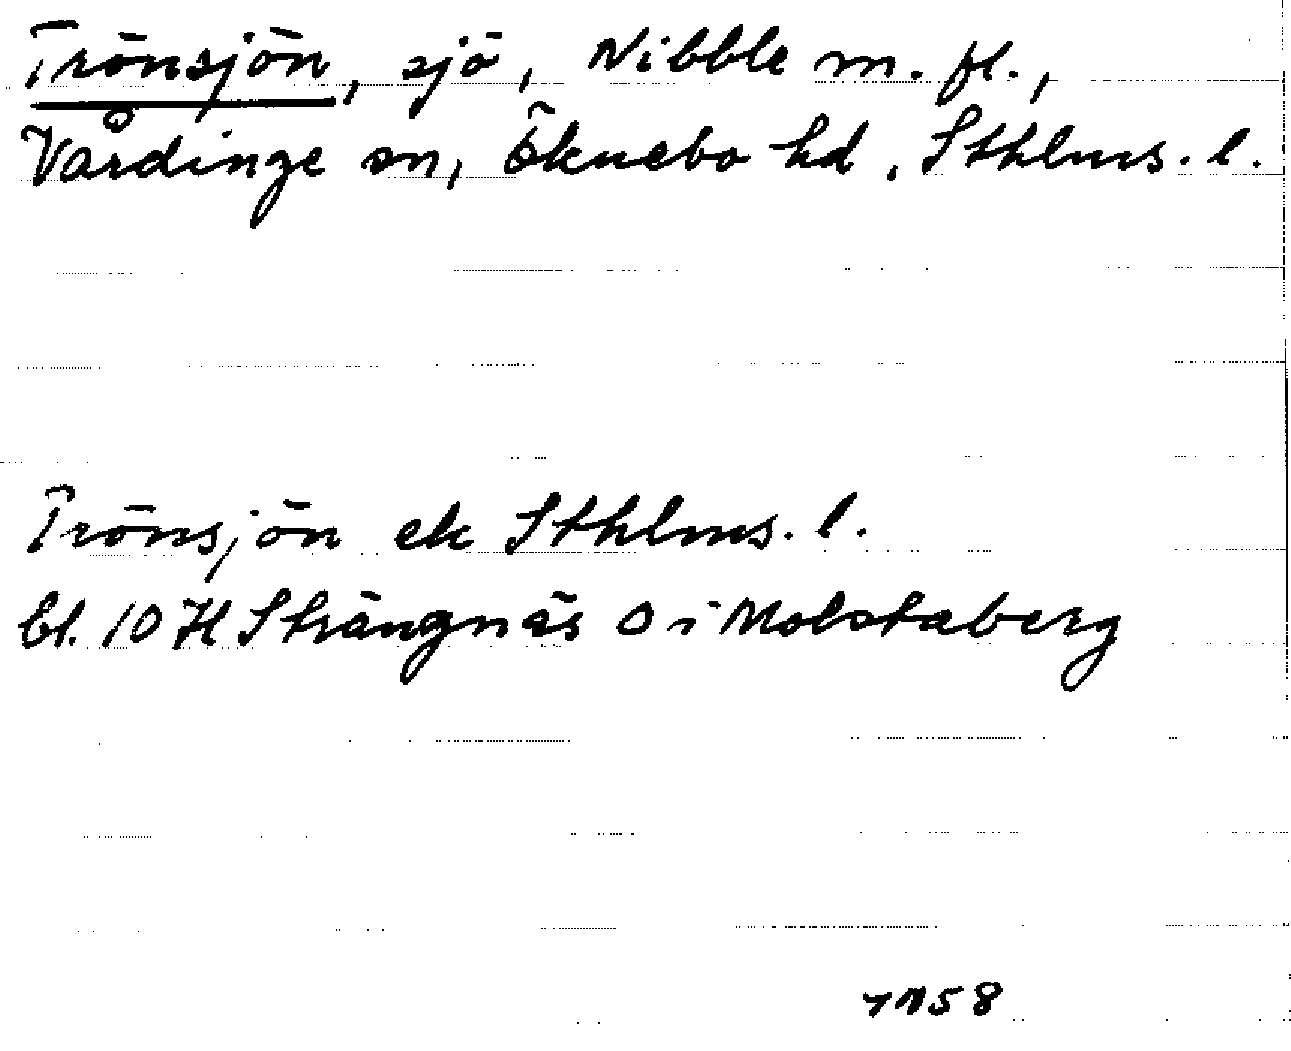 Trönsjön, sjö, Nibble m. fl.,
Vårdinge sn, Öknebo hd, Sthlms. l.
Trönsjön ek Sthlms. l.
bl. 10 H Strängnäs O i Molstaberg